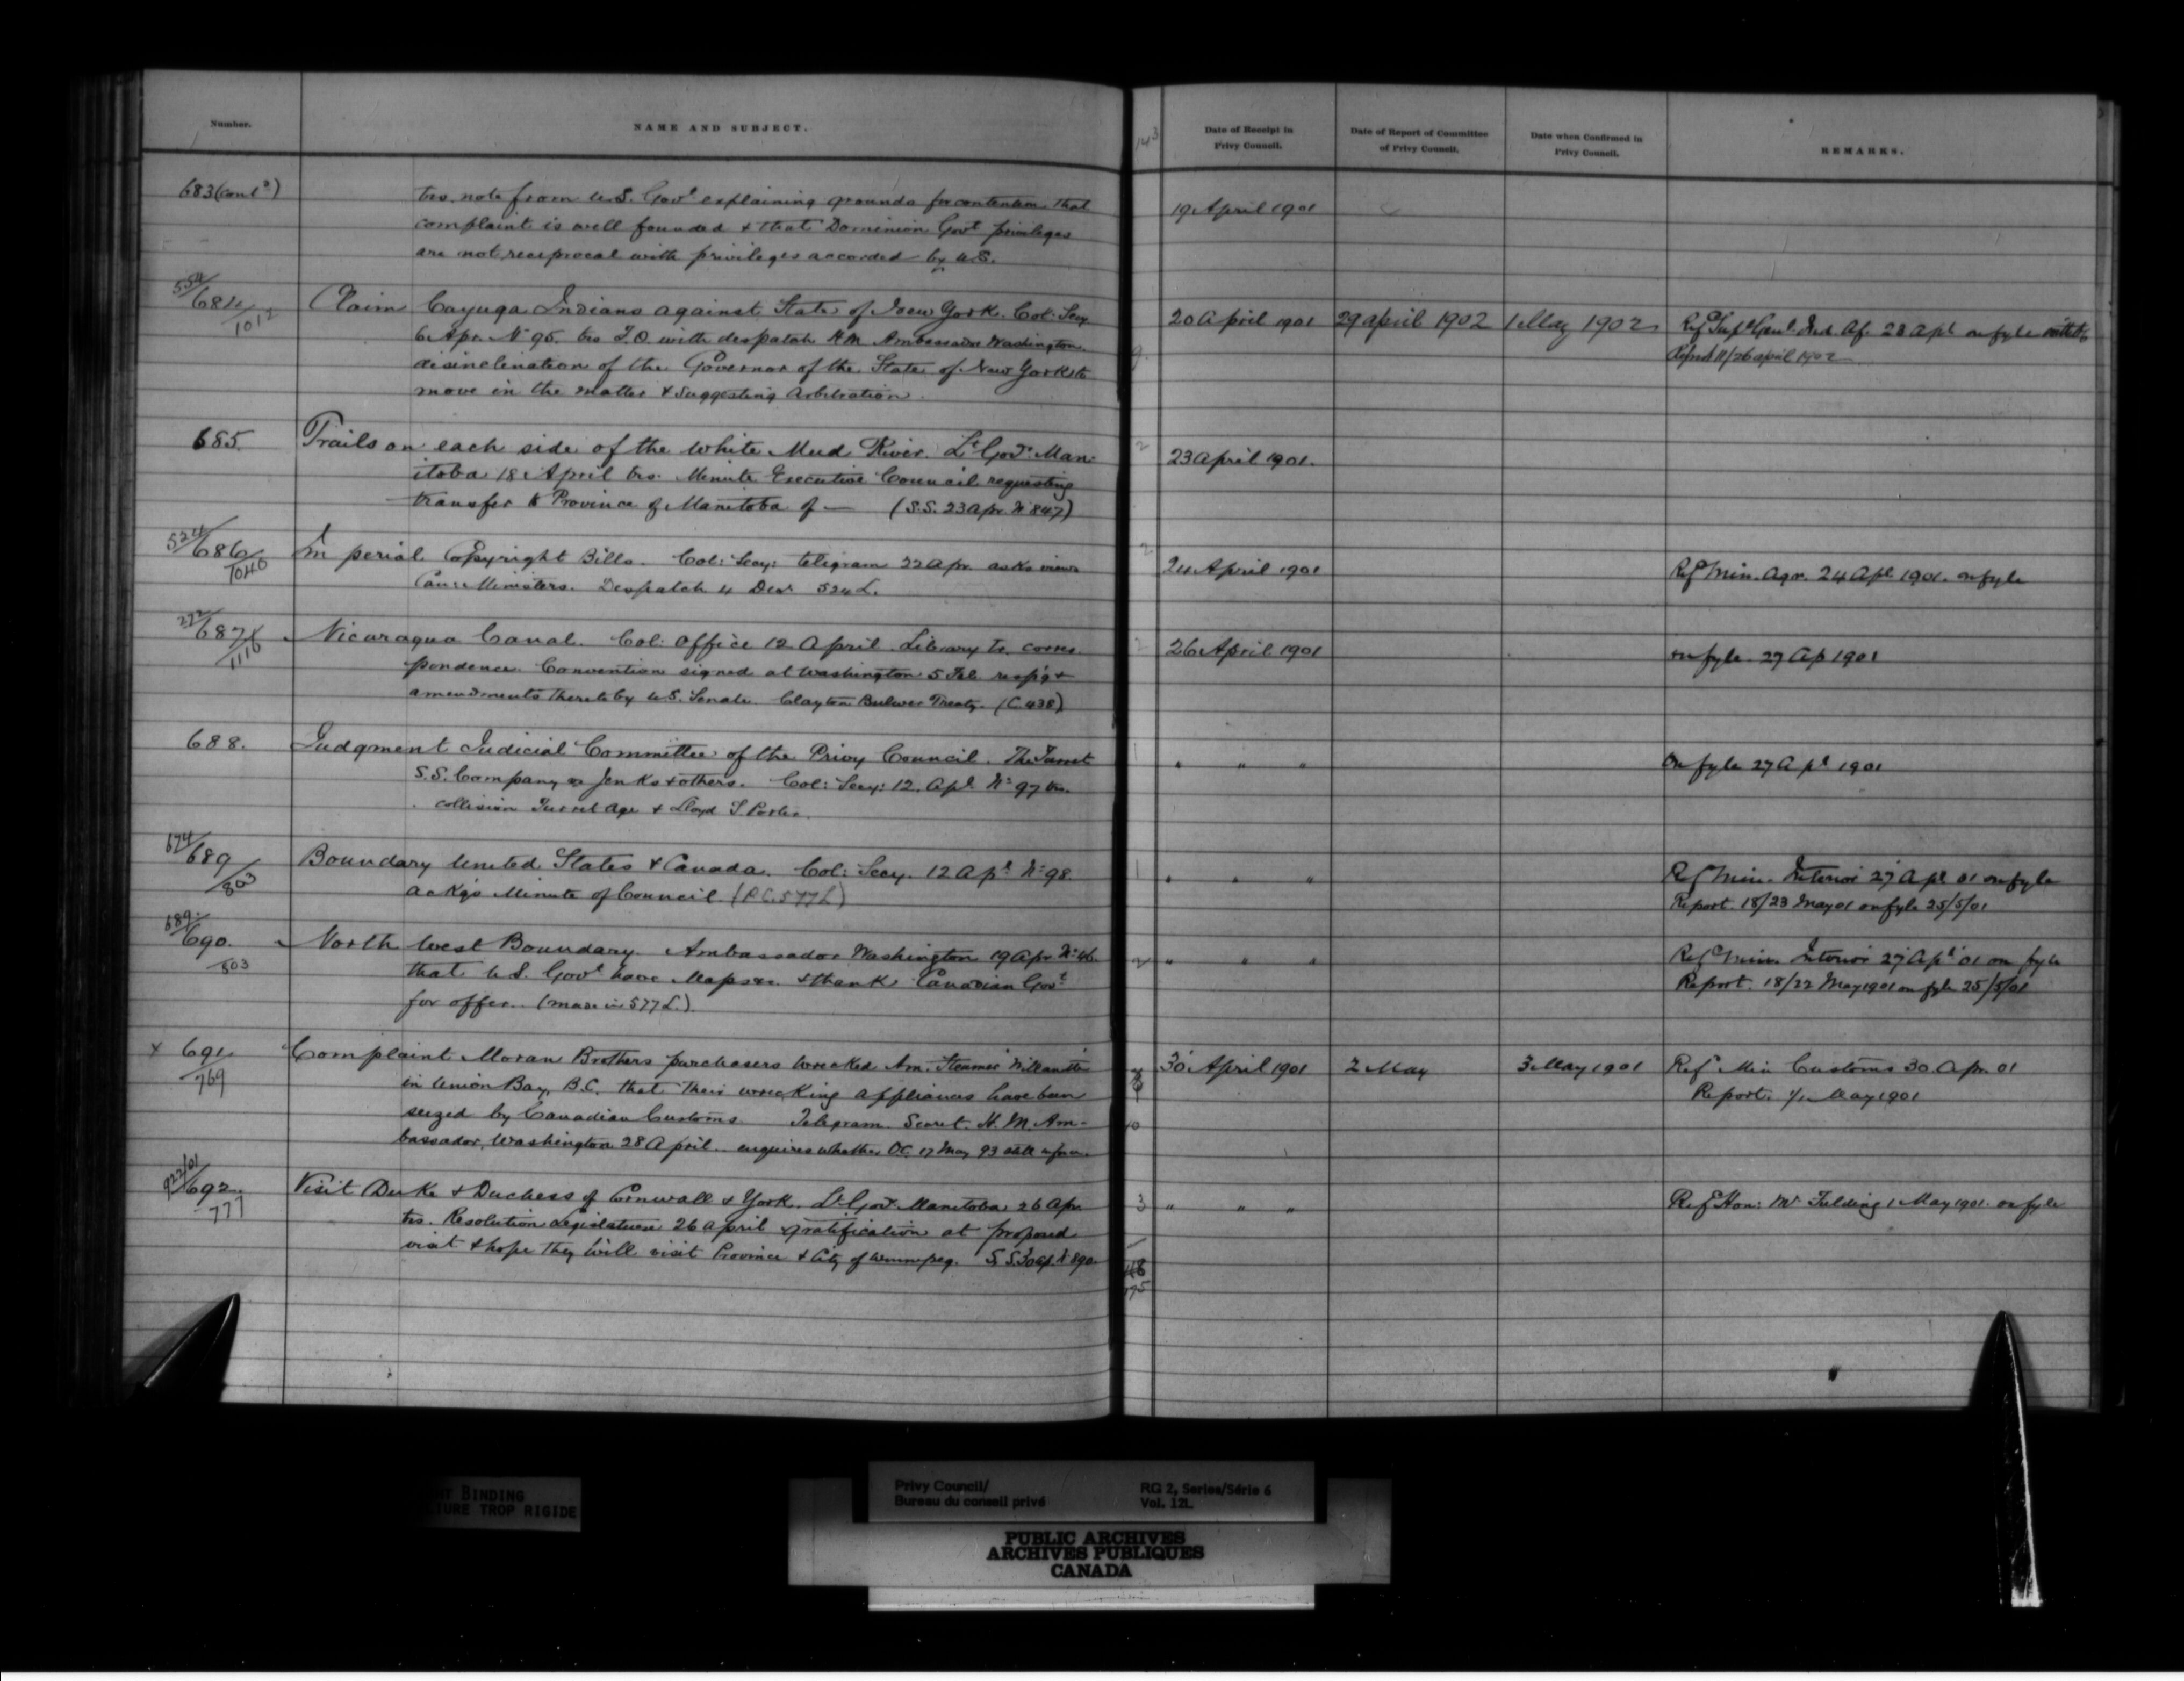 Number.
NAME AND SUBJECT.
143
Date of Receipt in
Privy Council.
Date of Report of Committee
of Privy Council.
Date when Confirmed in
Privy Council.
REMARKS.
683 (cont^d)
trs. note from U.S. Gov^t explaining grounds for contention that
complaint is well founded & that Dominion Gov^t privileges
are not reciprocal with privileges accorded by U.S.
19 April 1901
554/684/1012
Claim Cayuga Indians against State of New York. Col: Secy
6 Apr. N^o 95. trs F.O. with despatch H.M. Ambassador Washington.
disinclination of the Governor of the State of New York to
move in the matter & suggesting Arbitration.
20 April 1901
29 april 1902
1 May 1902
Ref^d Sup^t Genl. Ind. Af. 23 Apl on fyle
26 april 1902
685.
Trails on each side of the White Mud River. L^t Gov^r Man-
itoba 18 April trs. Minute Executive Council requesting
transfer to Province of Manitoba of — (S.S. 23 Apr. N^o 847)
2
23 April 1901.
524/686/1040
Imperial Copyright Bills. Col: Secy: telegram 22 Apr. asks views
Can: Ministers. Despatch 4 Dec^r 524 L.
2
24 April 1901
Ref^d Min. Agr. 24 Apl 1901. on fyle
272/687/1116
Nicaragua Canal. Col: Office 12 April. Library trs. corres-
pondence. Convention signed at Washington 5 Feb. resp'g &
amendments thereto by U.S. Senate. Clayton Bulwer Treaty. (C.438)
2
26 April 1901
on fyle. 27 Ap 1901
688.
Judgment Judicial Committee of the Privy Council. The Turret
S.S. Company vs Jenks & others. Col: Secy: 12. Apl. N^o 97 trs.
collision Turret Age & Lloyd S Porter.
1
" " "
On fyle 27 Apl 1901
674/689/803
Boundary United States & Canada. Col: Secy. 12 Apl N^o 98
ackg's Minute of Council (P.C. 577 L)
1
" " "
Ref^d Min. Interior 27 Apl 01 on fyle
Report. 18/23 May 01 on fyle 25/5/01
689/690./803
North West Boundary. Ambassador Washington 19 Apr. N^o 46.
that U.S. Gov^t have Maps &c. & thank Canadian Gov^t
for offer. (made in 577 L.)
2
" " "
Ref^d Min. Interior 27 Apl 01 on fyle
Report. 18/22 May 1901 on fyle 25/5/01
x 691/769
Complaint Moran Brothers purchasers wrecked Am. Steamer Willamette
in Union Bay, B.C. that their wrecking appliances have been
seized by Canadian Customs. Telegram. Secret. H.M. Am-
bassador, Washington 28 April. enquires whether OC. 17 May 93 still in force.
10
30 April 1901
2 May
3 May 1901
Ref^d Min Customs 30. Apr. 01
Report. 1/1 May 1901
922/01/692/777
Visit Duke & Duchess of Cornwall & York. L^t Gov^r Manitoba 26 Apr.
trs. Resolution Legislature 26 April gratification at proposed
visit & hope they will visit Province & City of Winnipeg. S.S. 30 Ap. N^o 890.
3
" " "
Ref^d Hon: M^r Fielding 1 May 1901. on fyle
175
BINDING
LIURE TROP RIGIDE
Privy Council/
Bureau du conseil privé
RG 2, Series/Série 6
Vol. 12L
PUBLIC ARCHIVES
ARCHIVES PUBLIQUES
CANADA